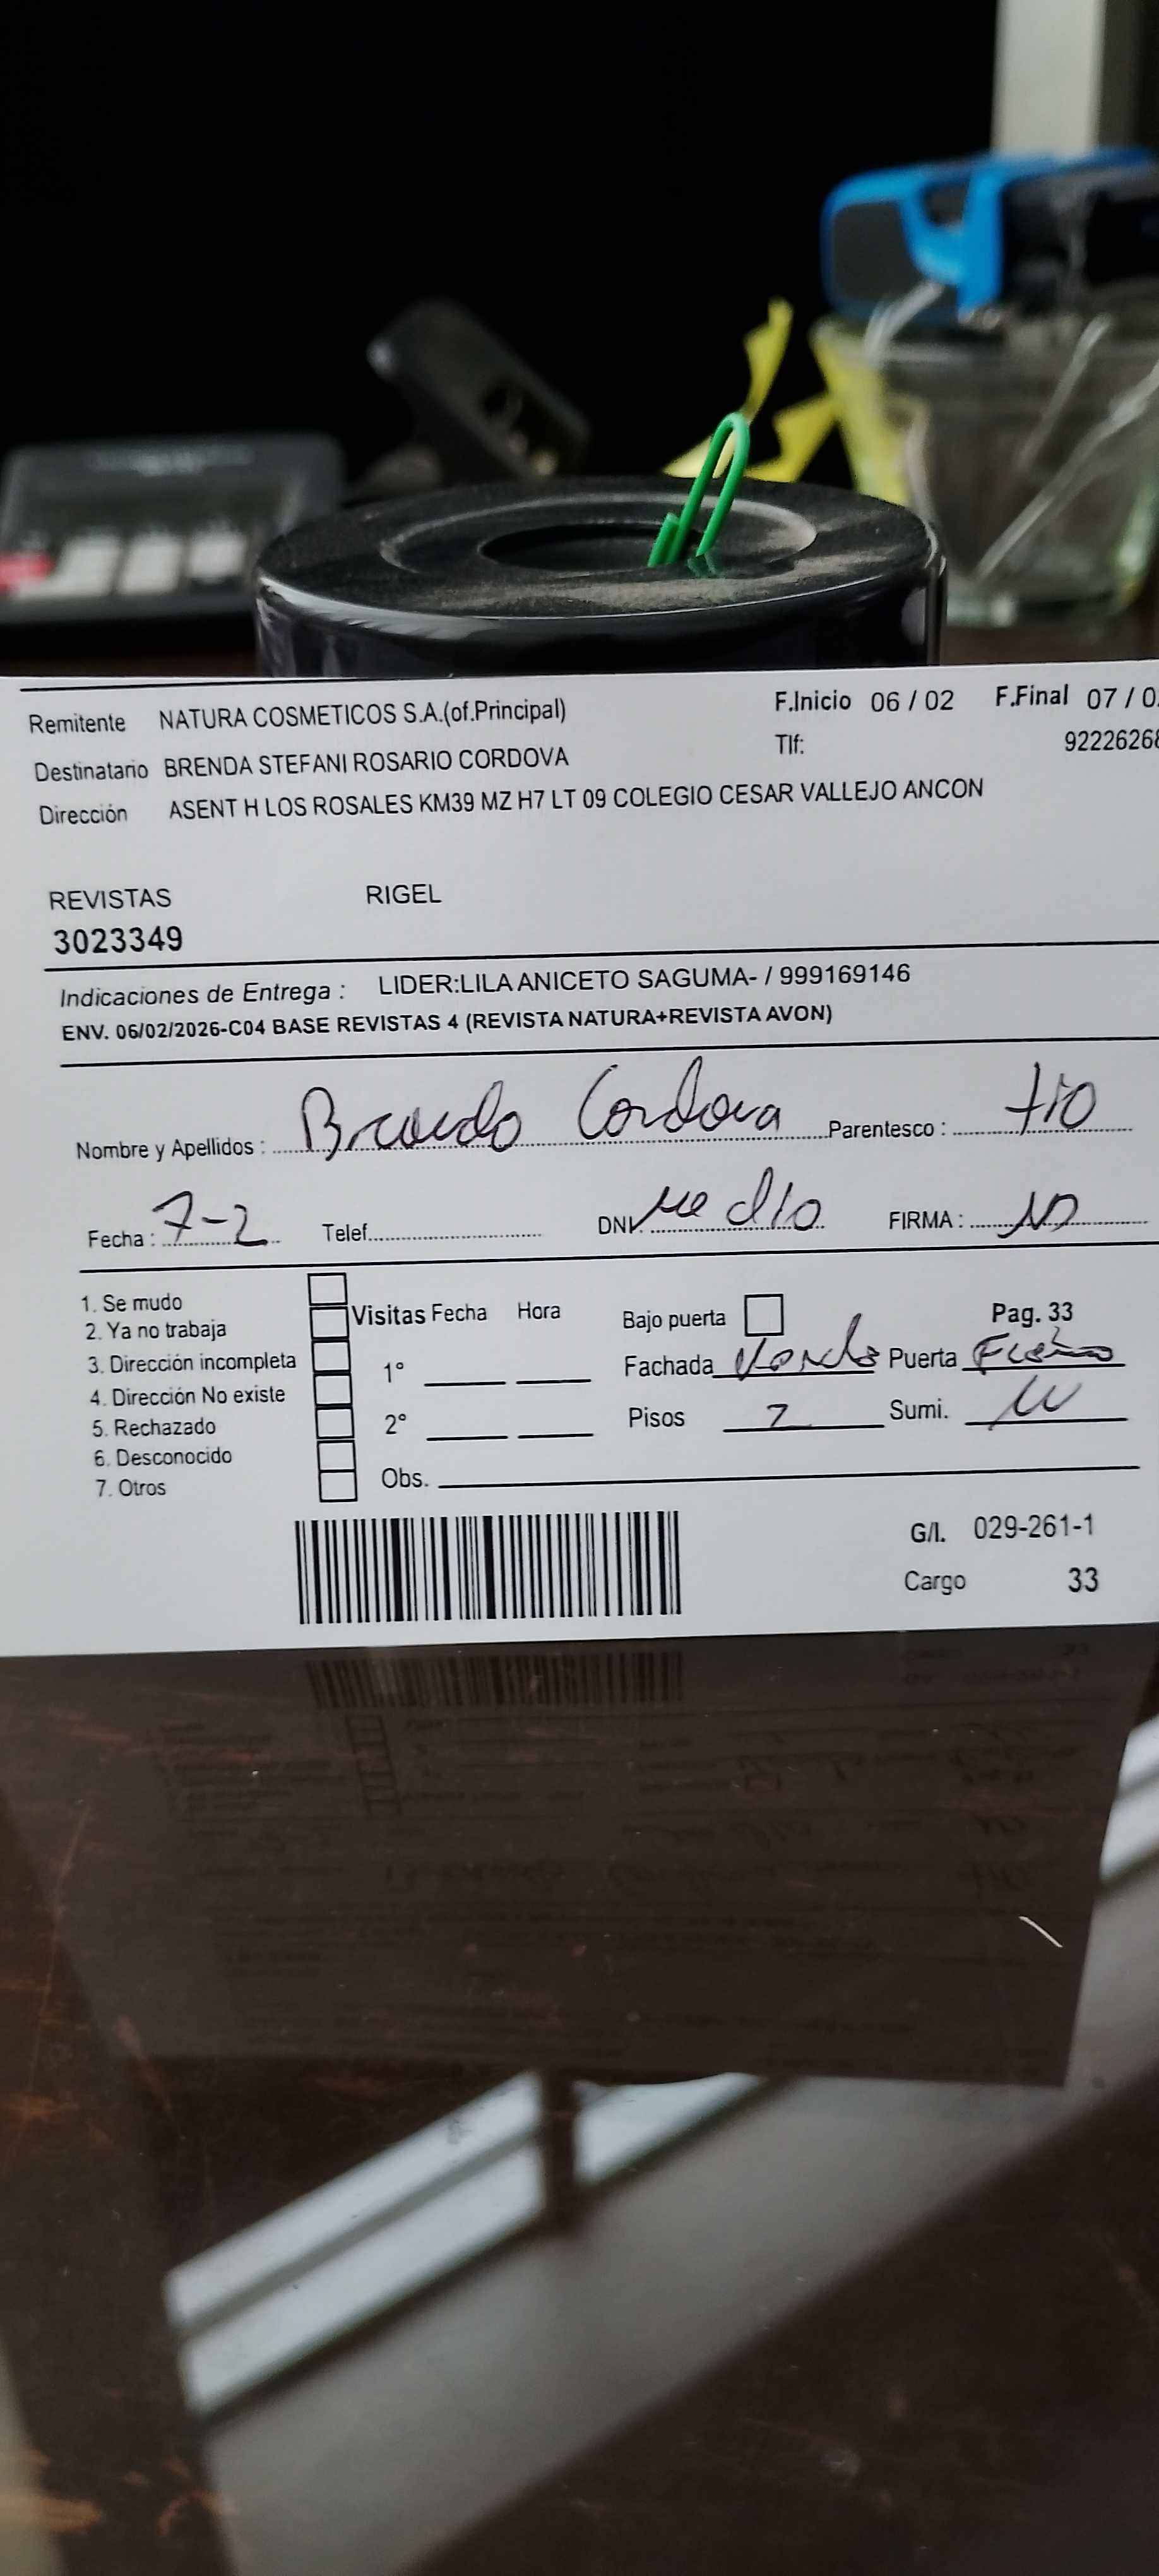 Remitente NATURA COSMETICOS S.A.(of.Principal) F.Inicio 06 / 02 F.Final 07 / 0
Destinatario BRENDA STEFANI ROSARIO CORDOVA Tlf: 9222626
Dirección ASENT H LOS ROSALES KM39 MZ H7 LT 09 COLEGIO CESAR VALLEJO ANCON
REVISTAS RIGEL
3023349
Indicaciones de Entrega : LIDER:LILA ANICETO SAGUMA- / 999169146
ENV. 06/02/2026-C04 BASE REVISTAS 4 (REVISTA NATURA+REVISTA AVON)
Nombre y Apellidos : Cordova Parentesco : tio
Fecha : 7-2 Telef. DNI. dio FIRMA :
1. Se mudo
2. Ya no trabaja
3. Dirección incompleta
4. Dirección No existe
5. Rechazado
6. Desconocido
7. Otros
Visitas Fecha Hora
1°
2°
Obs.
Bajo puerta Pag. 33
Fachada Puerta
Pisos Sumi.
G/I. 029-261-1
Cargo 33